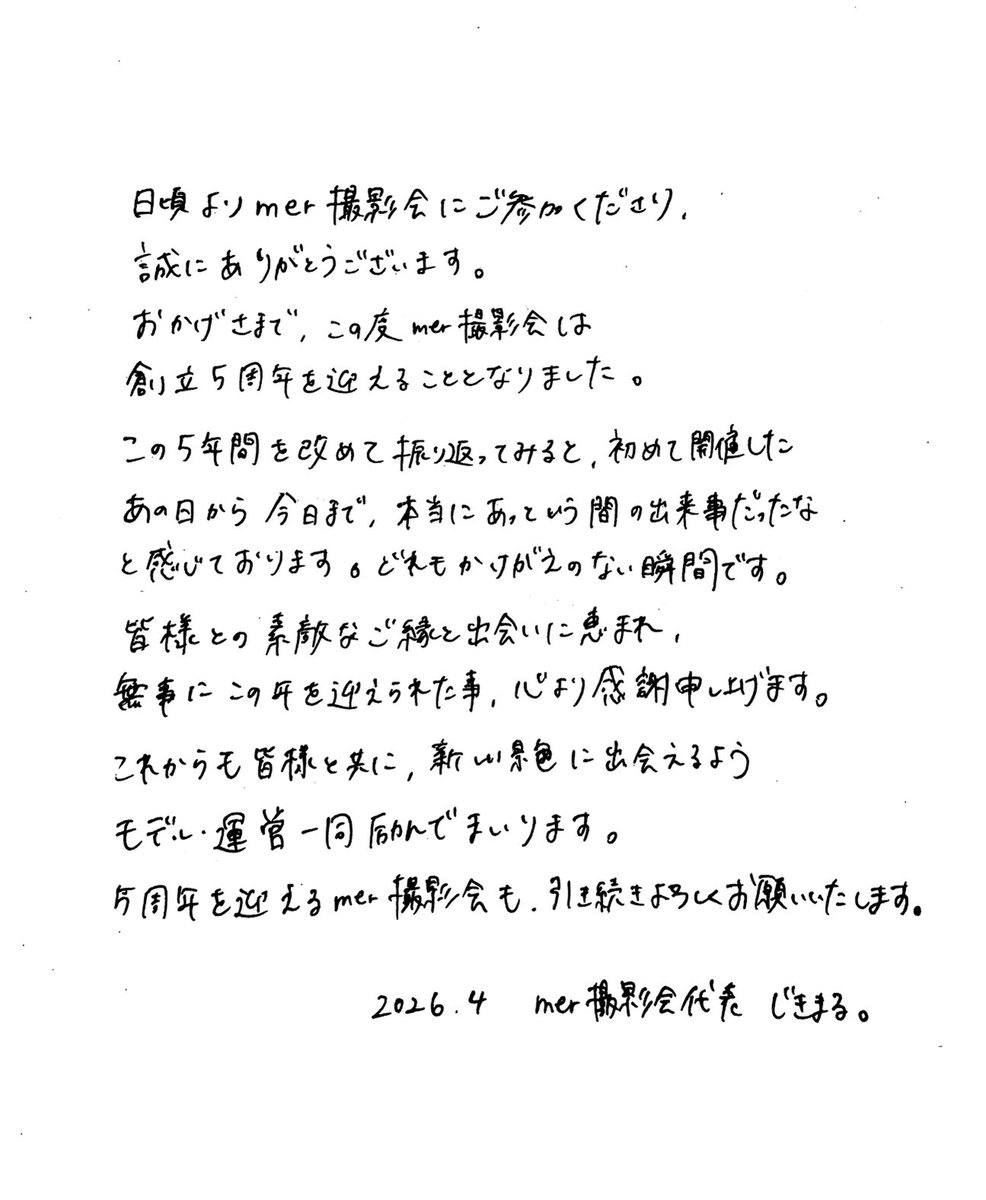 日頃よりmer撮影会にご参加くださり、
誠にありがとうございます。
おかげさまで、この度mer撮影会は
創立5周年を迎えることとなりました。
この5年間を改めて振り返ってみると、初めて開催した
あの日から今日まで、本当にあっという間の出来事だったな
と感じております。どれもかけがえのない瞬間です。
皆様との素敵なご縁と出会いに恵まれ、
無事にこの年を迎えられた事、心より感謝申し上げます。
これからも皆様と共に、新しい景色に出会えるよう
モデル・運営一同励んでまいります。
5周年を迎えるmer撮影会も、引き続きよろしくお願いいたします。
2026.4 mer撮影会代表 じきまる。